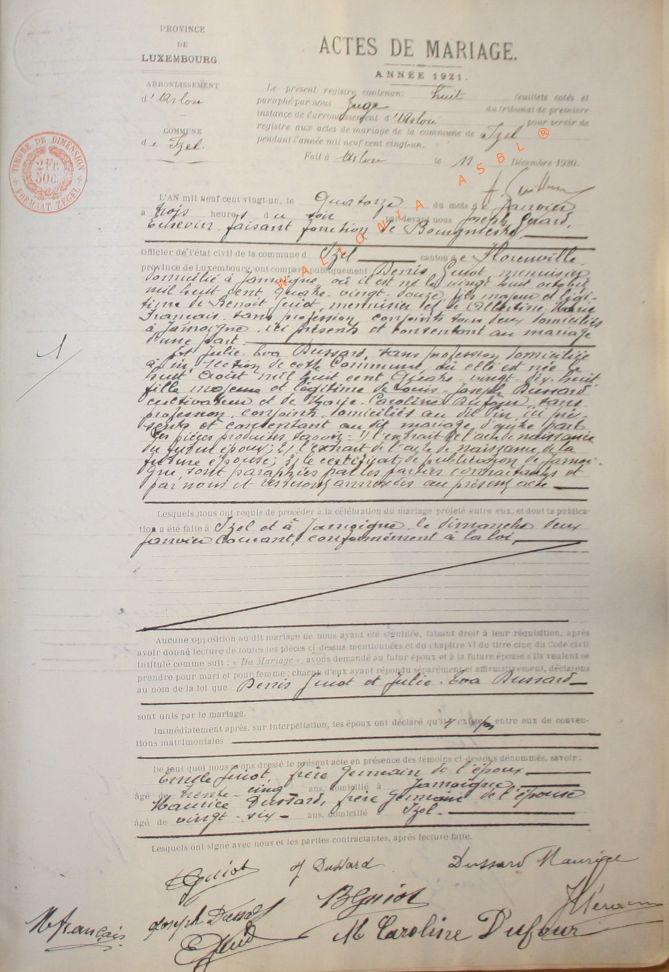 PROVINCE
DE
LUXEMBOURG.
ARRONDISSEMENT
d'Arlon
COMMUNE
de Izel
TIMBRE DE DIMENSION
2 Fr. 50c.
FORMAAT ZEGEL
ACTES DE MARIAGE.
ANNÉE 1921.
Le présent registre contenant huit feuillets cotés et
paraphé par nous Juge du tribunal de première
instance de l'arrondissement d'Arlon pour servir de
registre aux actes de mariage de la commune de Izel
pendant l'année mil neuf cent vingt-un.
Fait à Arlon le 11 Décembre 1920.
WALLONIA ASBL ®
L'AN mil neuf cent vingt-un, le quatorze du mois de Janvier
à trois heures du soir par devant nous Joseph
Echevin faisant fonction de Bourgmestre
Officier de l'état civil de la commune d Izel canton de Florenville
province de Luxembourg, ont comparu publiquement Denis Guiot, menuisier
domicilié à Jamoigne, où il est né le vingt huit octobre
mil huit cent quatre-vingt-douze, fils majeur et légi-
time de Benoit Guiot, menuisier et de Célestine Marie
Français, sans profession, conjoints tous deux domiciliés
à Jamoigne, ici présents et consentant au mariage
d'une part.
1/
Et Julie Eva Dussard, sans profession, domiciliée
à Pin, section de cette Commune, où elle est née le
huit Août mil huit cent quatre-vingt-dix-huit
fille majeure et légitime de Louis Joseph Dussard
cultivateur et de Marie Caroline Dufour, sans
profession, conjoints domiciliés au dit Pin, ici pré-
sents et consentant au dit mariage d'autre part.
Les pièces produites savoir: 1) l'extrait de l'acte de naissance
du futur époux; 2) l'extrait de l'acte de naissance de la
future épouse; 3) le certificat de publication de Jamoi-
gne, sont paraphées par les parties contractantes et
par nous et resteront annexées au présent acte
Lesquels nous ont requis de procéder à la célébration du mariage projeté entre eux, et dont la publica-
tion a été faite à Izel et à Jamoigne le dimanche deux
janvier courant, conformément à la loi,
Aucune opposition au dit mariage ne nous ayant été signifiée, faisant droit à leur réquisition, après
avoir donné lecture de toutes les pièces ci-dessus mentionnées et du chapitre VI du titre cinq du Code civil
intitulé comme suit : « Du Mariage », avons demandé au futur époux et à la future épouse s'ils veulent se
prendre pour mari et pour femme; chacun d'eux ayant répondu séparément et affirmativement, déclarons
au nom de la loi que Denis Guiot et Julie Eva Dussard
sont unis par le mariage.
Immédiatement après, sur interpellation, les époux ont déclaré qu'il existe entre eux de conven-
tions matrimoniales
De tout quoi nous avons dressé le présent acte en présence des témoins ci dessous dénommés, savoir :
Emile Guiot, frère germain de l'époux
âgé de trente-cinq ans, domicilié à Jamoigne
Maurice Dussard, frère germain de l'épouse
âgé de vingt-six ans, domicilié Izel
Lesquels ont signé avec nous et les parties contractantes, après lecture faite.
Guiot J Dussard Dussard Maurice
Joseph Dussard B Guiot
M Français
M Caroline Dufour